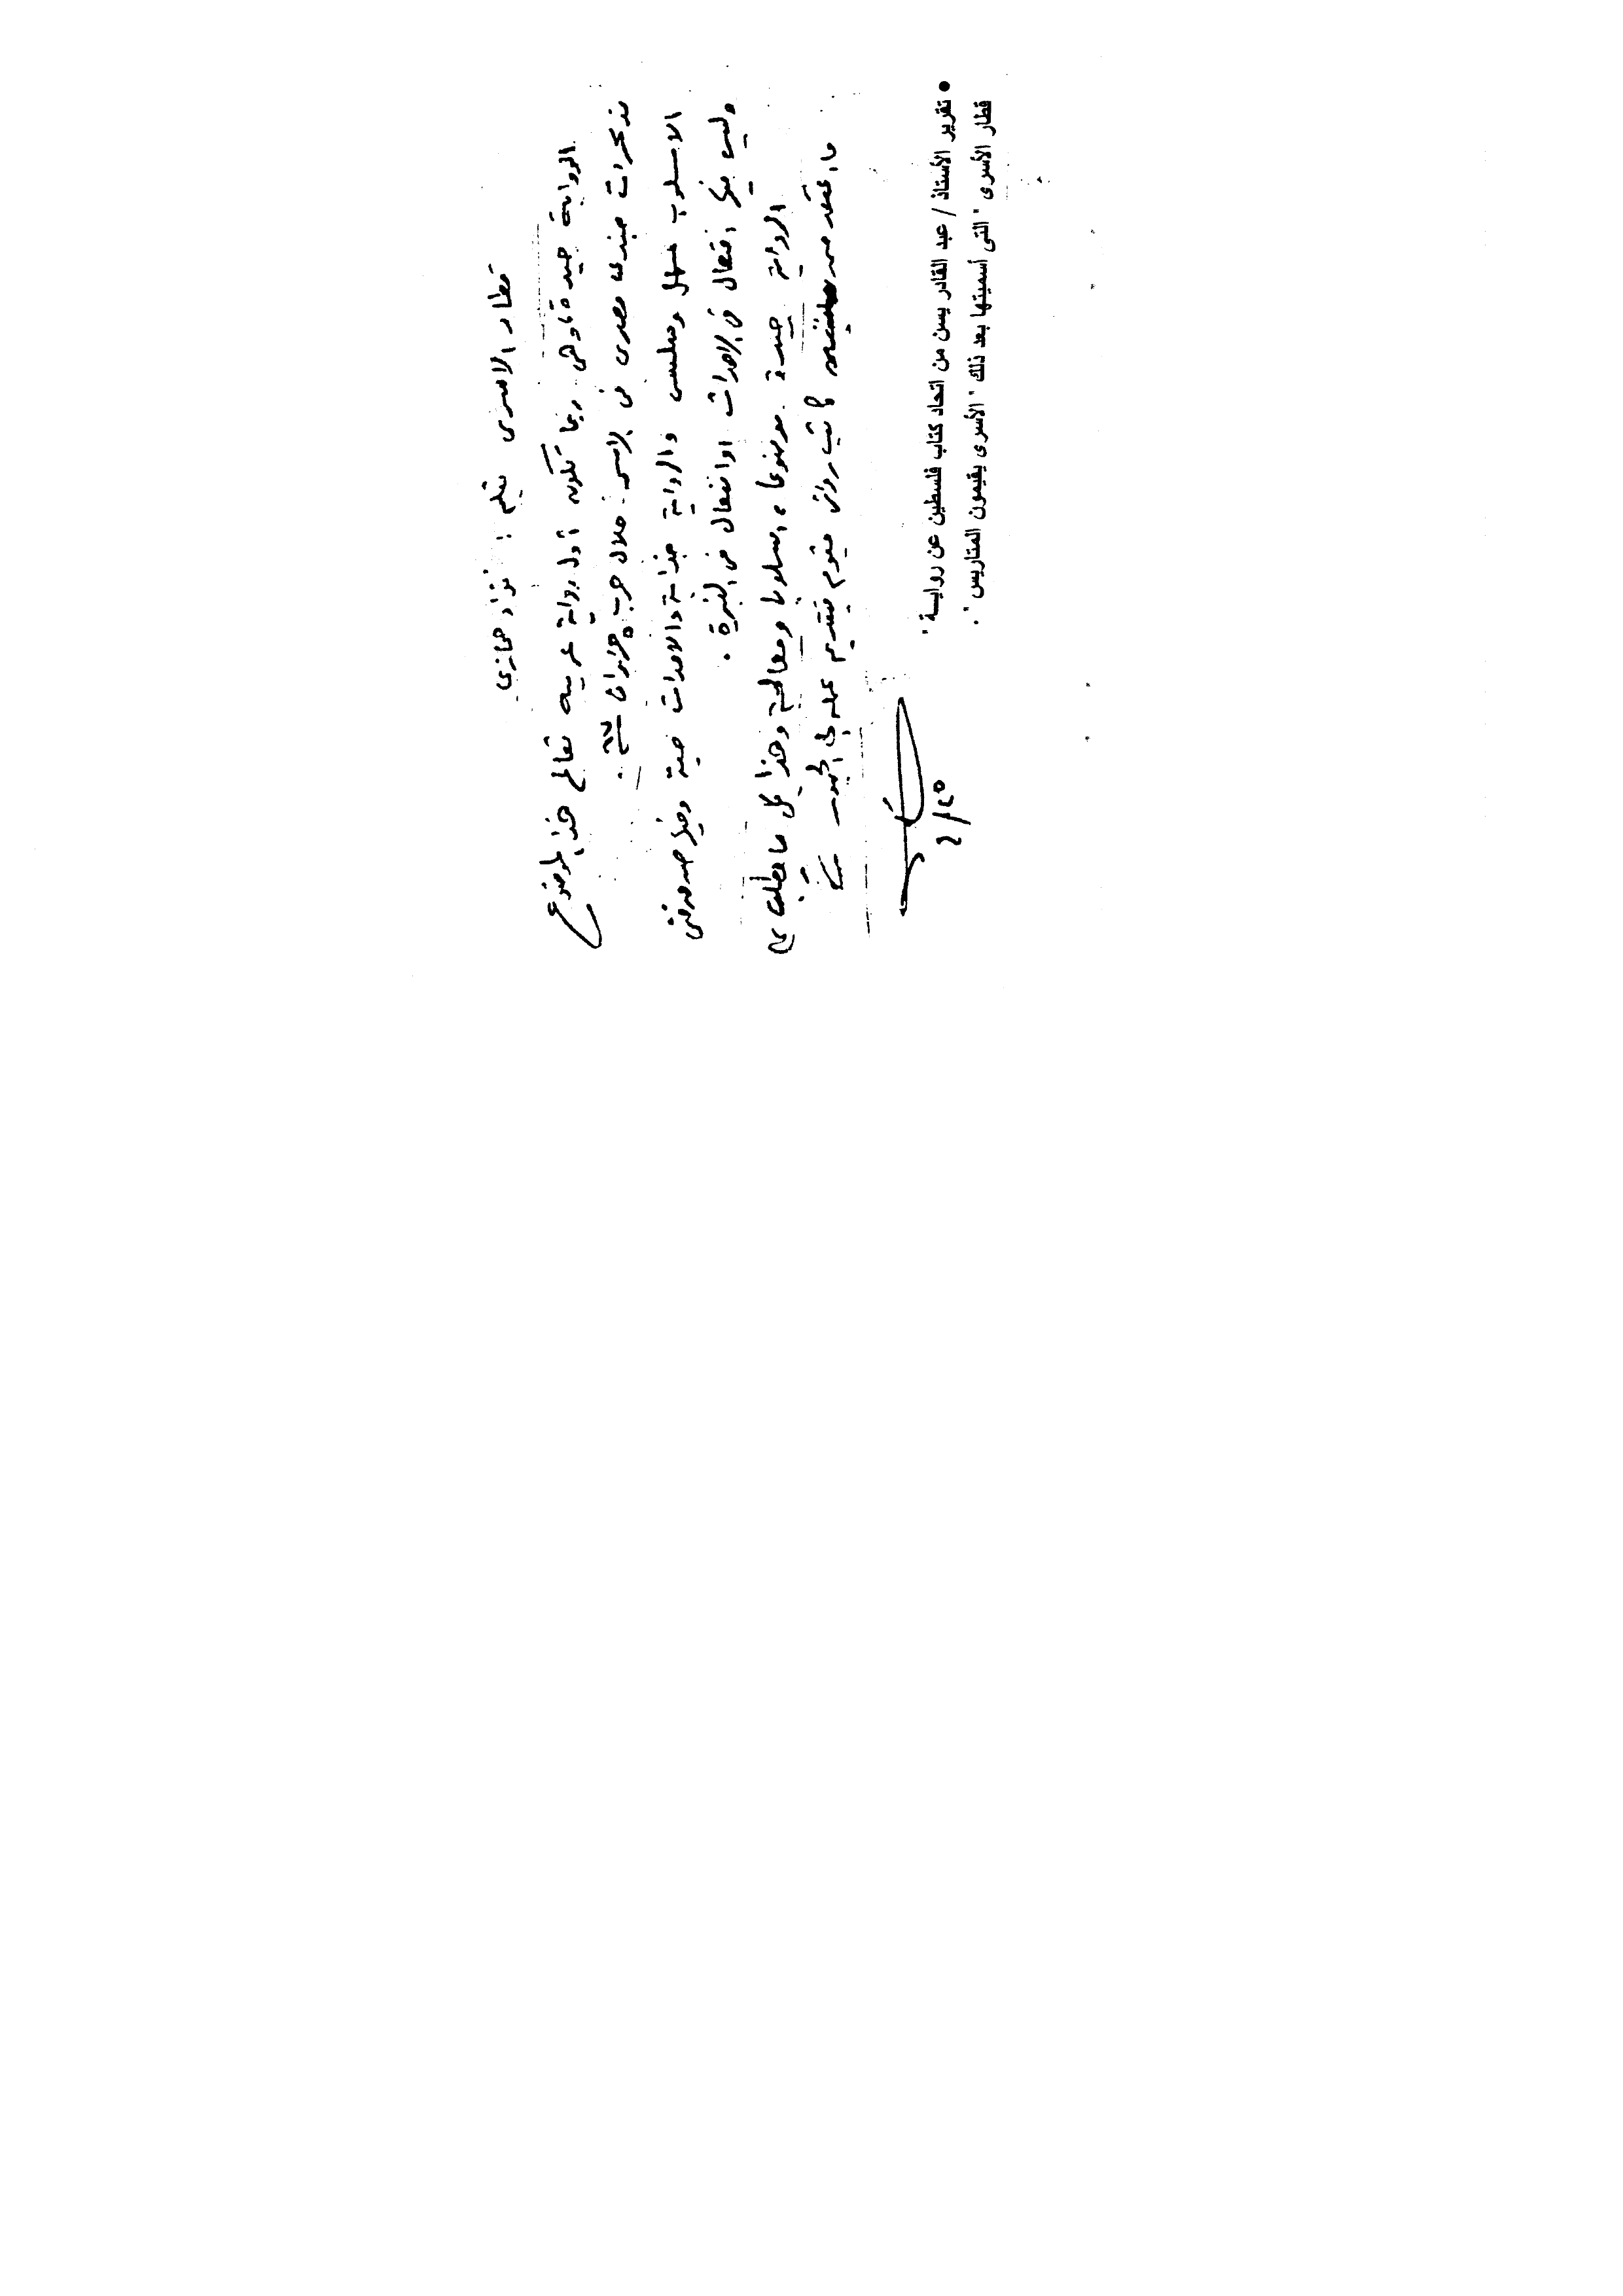 قطار الاسرى بقلم : فؤاد حجازي
الرواية جيدة وهى ربما تكون أول رواية عربيه تعالج هذا الموضوع
مذكرات جندى مصرى فى الاسر خلال حرب حزيران ٦٧ .
الاسلوب سهل وسلس والرواية جذابة والاحداث حية وفيها صدق فنى
وليس فيها افتعال فى الاحداث او انفعال فى النبرة .
الرواية جيدة موضوعا واسلوبا ومعالجة وهذا كل ما يطلب
كاتب روائى يقوم بتقديم عمله إلى الجمهور
٢/٢٥
• تقرير الأستاذ / عبد القادر يسن من اتحاد كتاب فلسطين عن روايـــة "
قطار الأسرى " التى أسميتها بعد ذلك " الأسرى يقيمون المتاريس " .